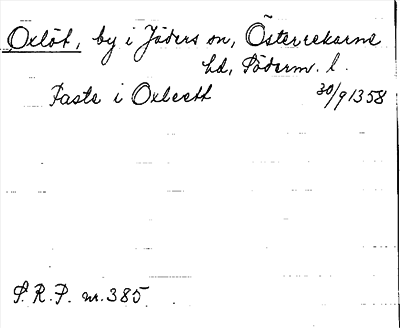 Oxlöt, by i Jäders sn, Österrekarne
hd, Söderm. l.
Faste i Oxleett 30/9 1358
S.R.P. nr. 385